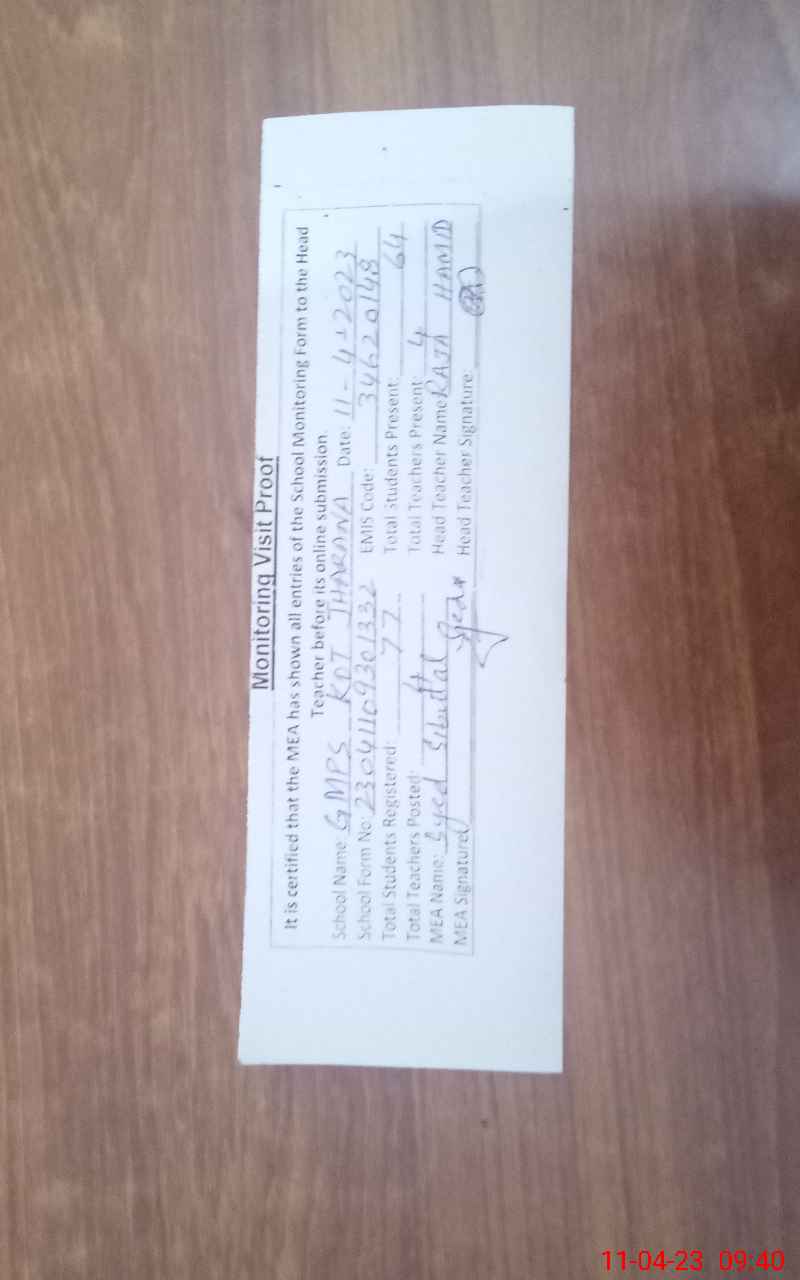 Monitoring Visit Proof
It is certified that the MEA has shown all entries of the School Monitoring Form to the Head
Teacher before its online submission.
School Name: GMPS KOT JHARANA Date: 11-4-2023
School Form No: 23041109301332 EMIS Code: 34620148
Total Students Registered: 77 Total Students Present: 64
Total Teachers Posted: 4 Total Teachers Present: 4
MEA Name: Syed Sibtal Head Teacher Name: RAJA HAMID
MEA Signature: Head Teacher Signature:
11-04-23 09:40